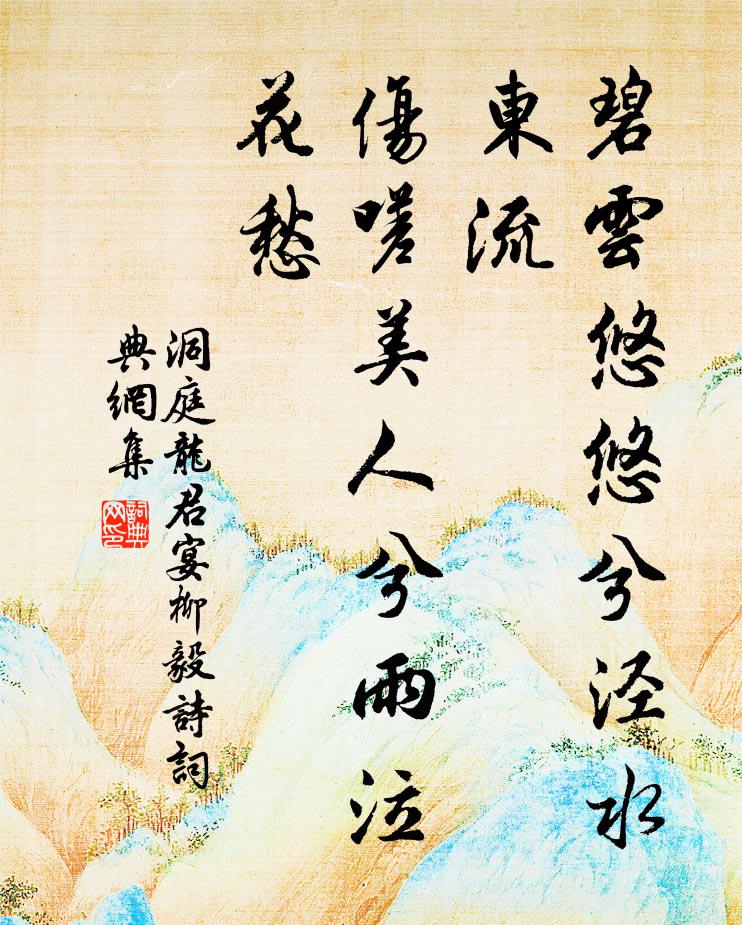 碧雲悠悠兮泾水
東流
傷嗟美人兮雨泣
花愁
洞庭龍君宴柳毅詩詞
典網集
詞典
网印